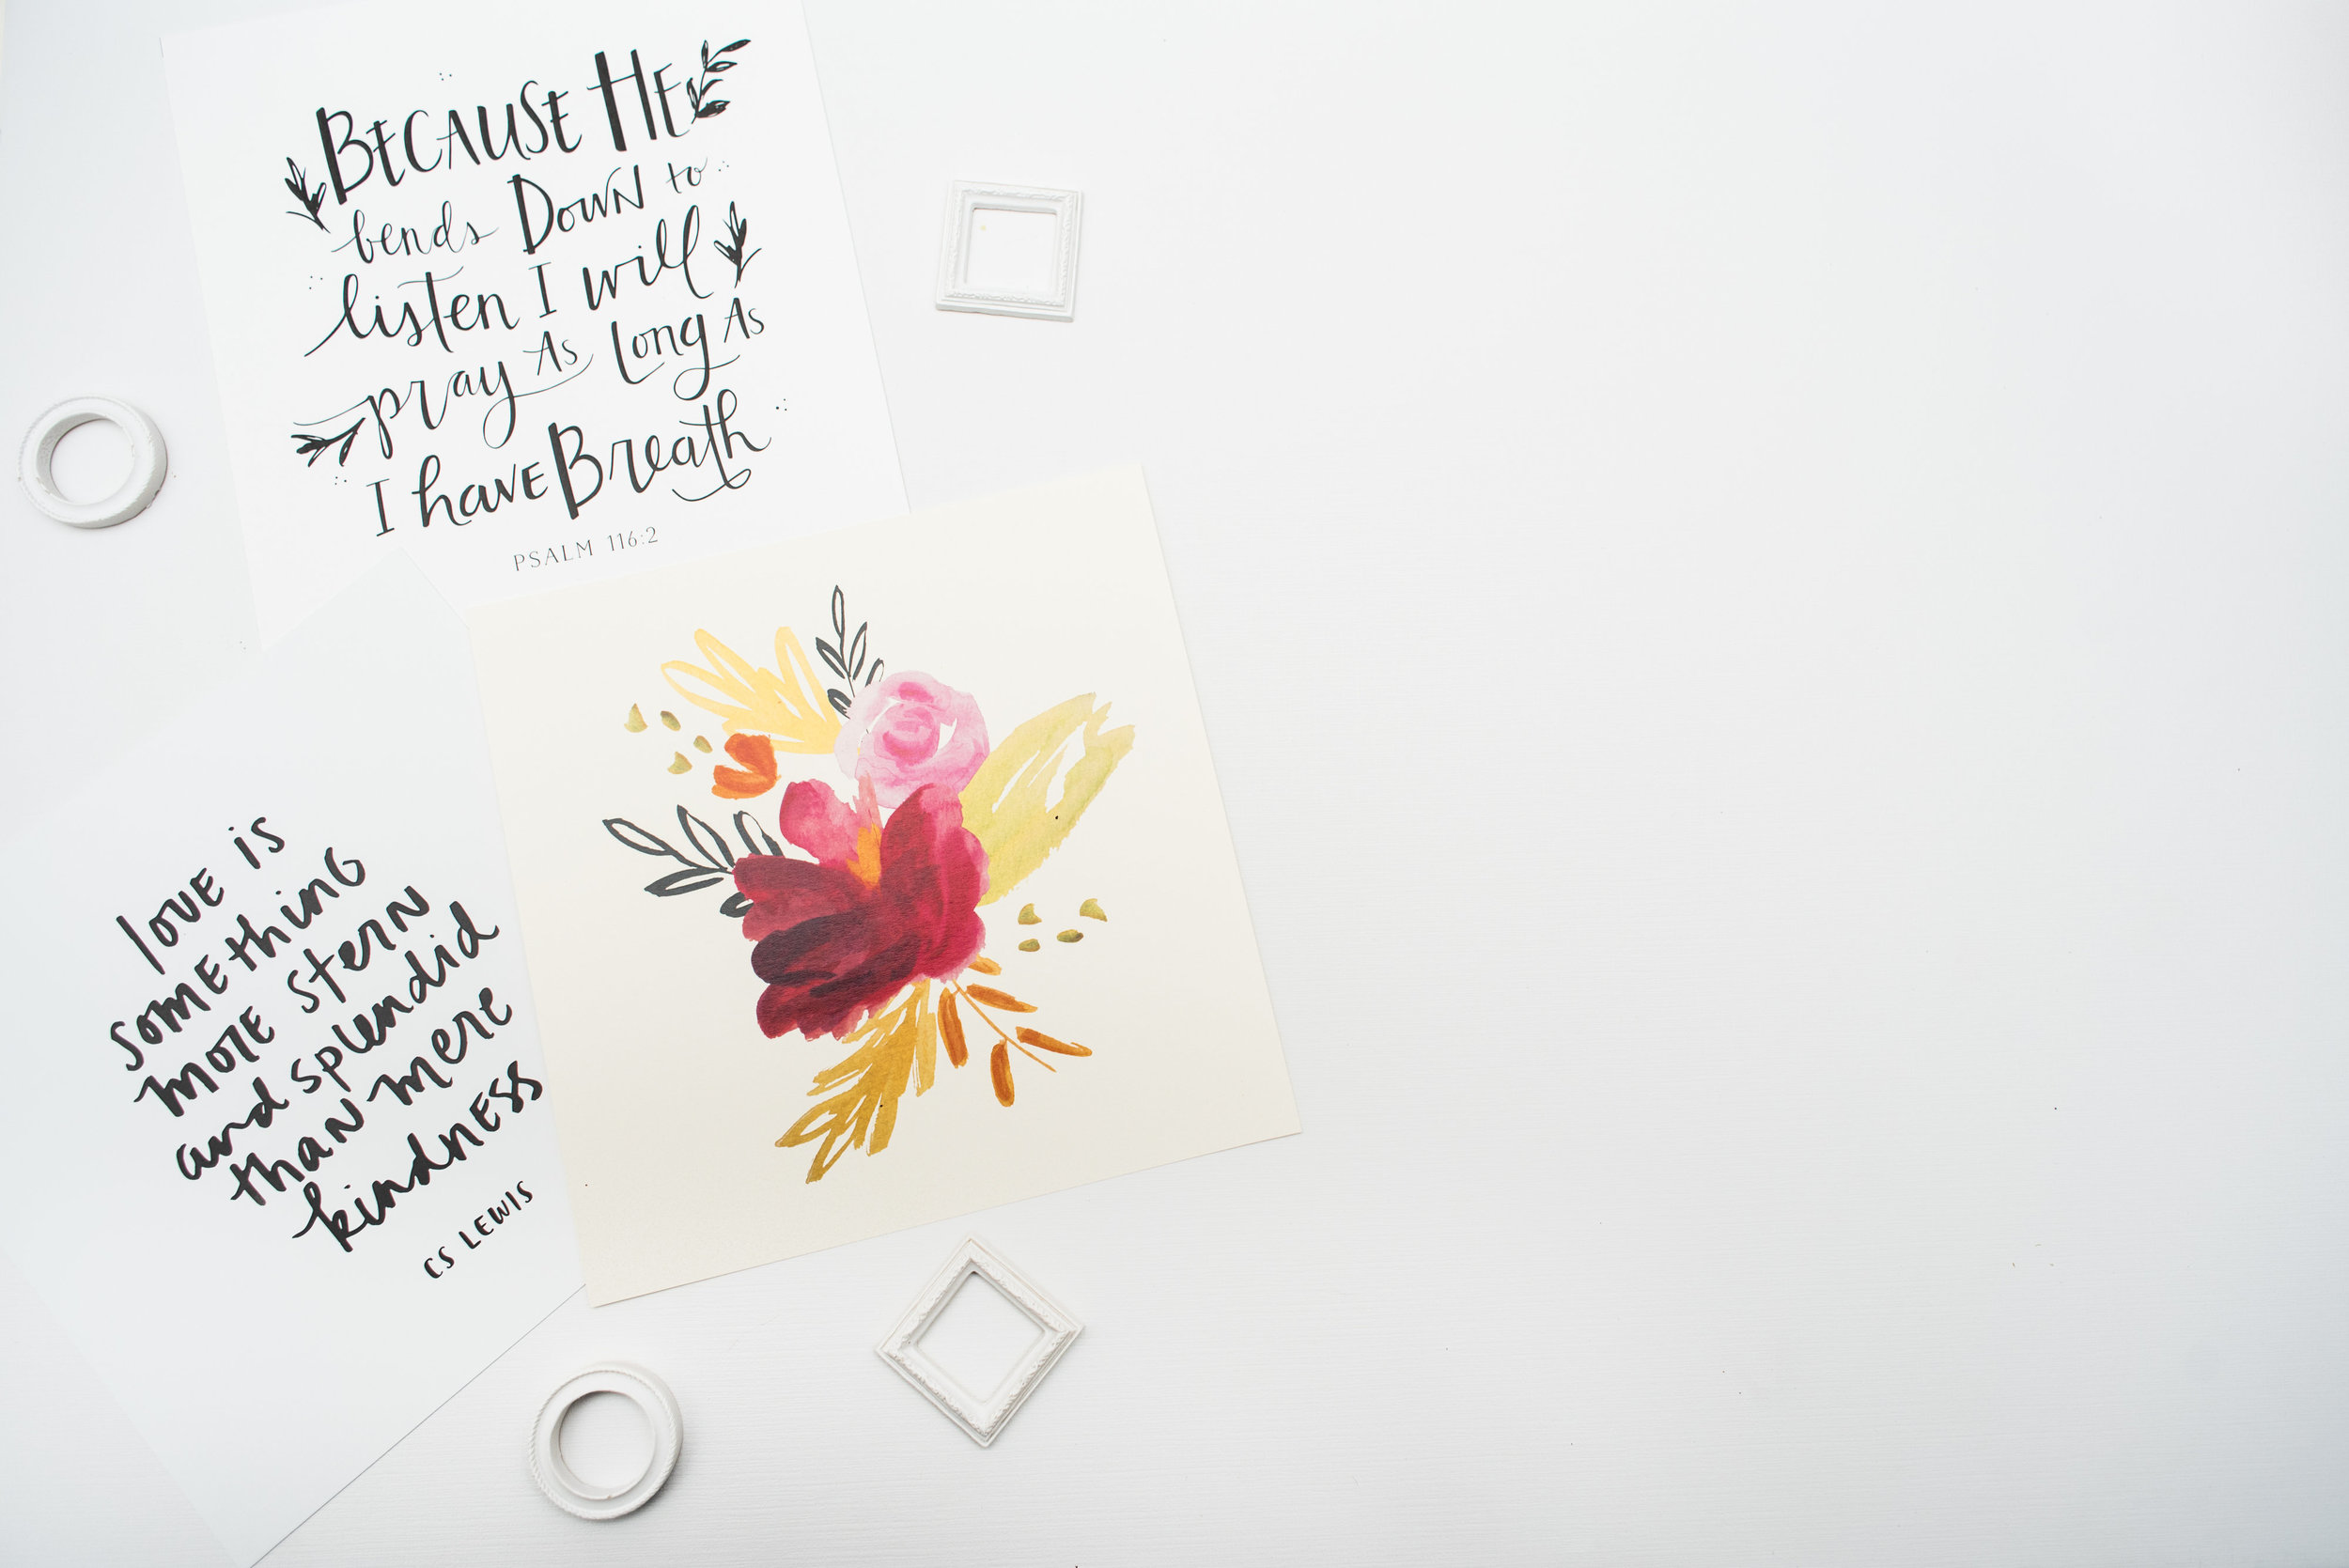 BECAUSE HE
bends DOWN to
listen I will
pray As long As
I have Breath
PSALM 116:2
love is
something
more stern
and splendid
than mere
kindness
CS LEWIS